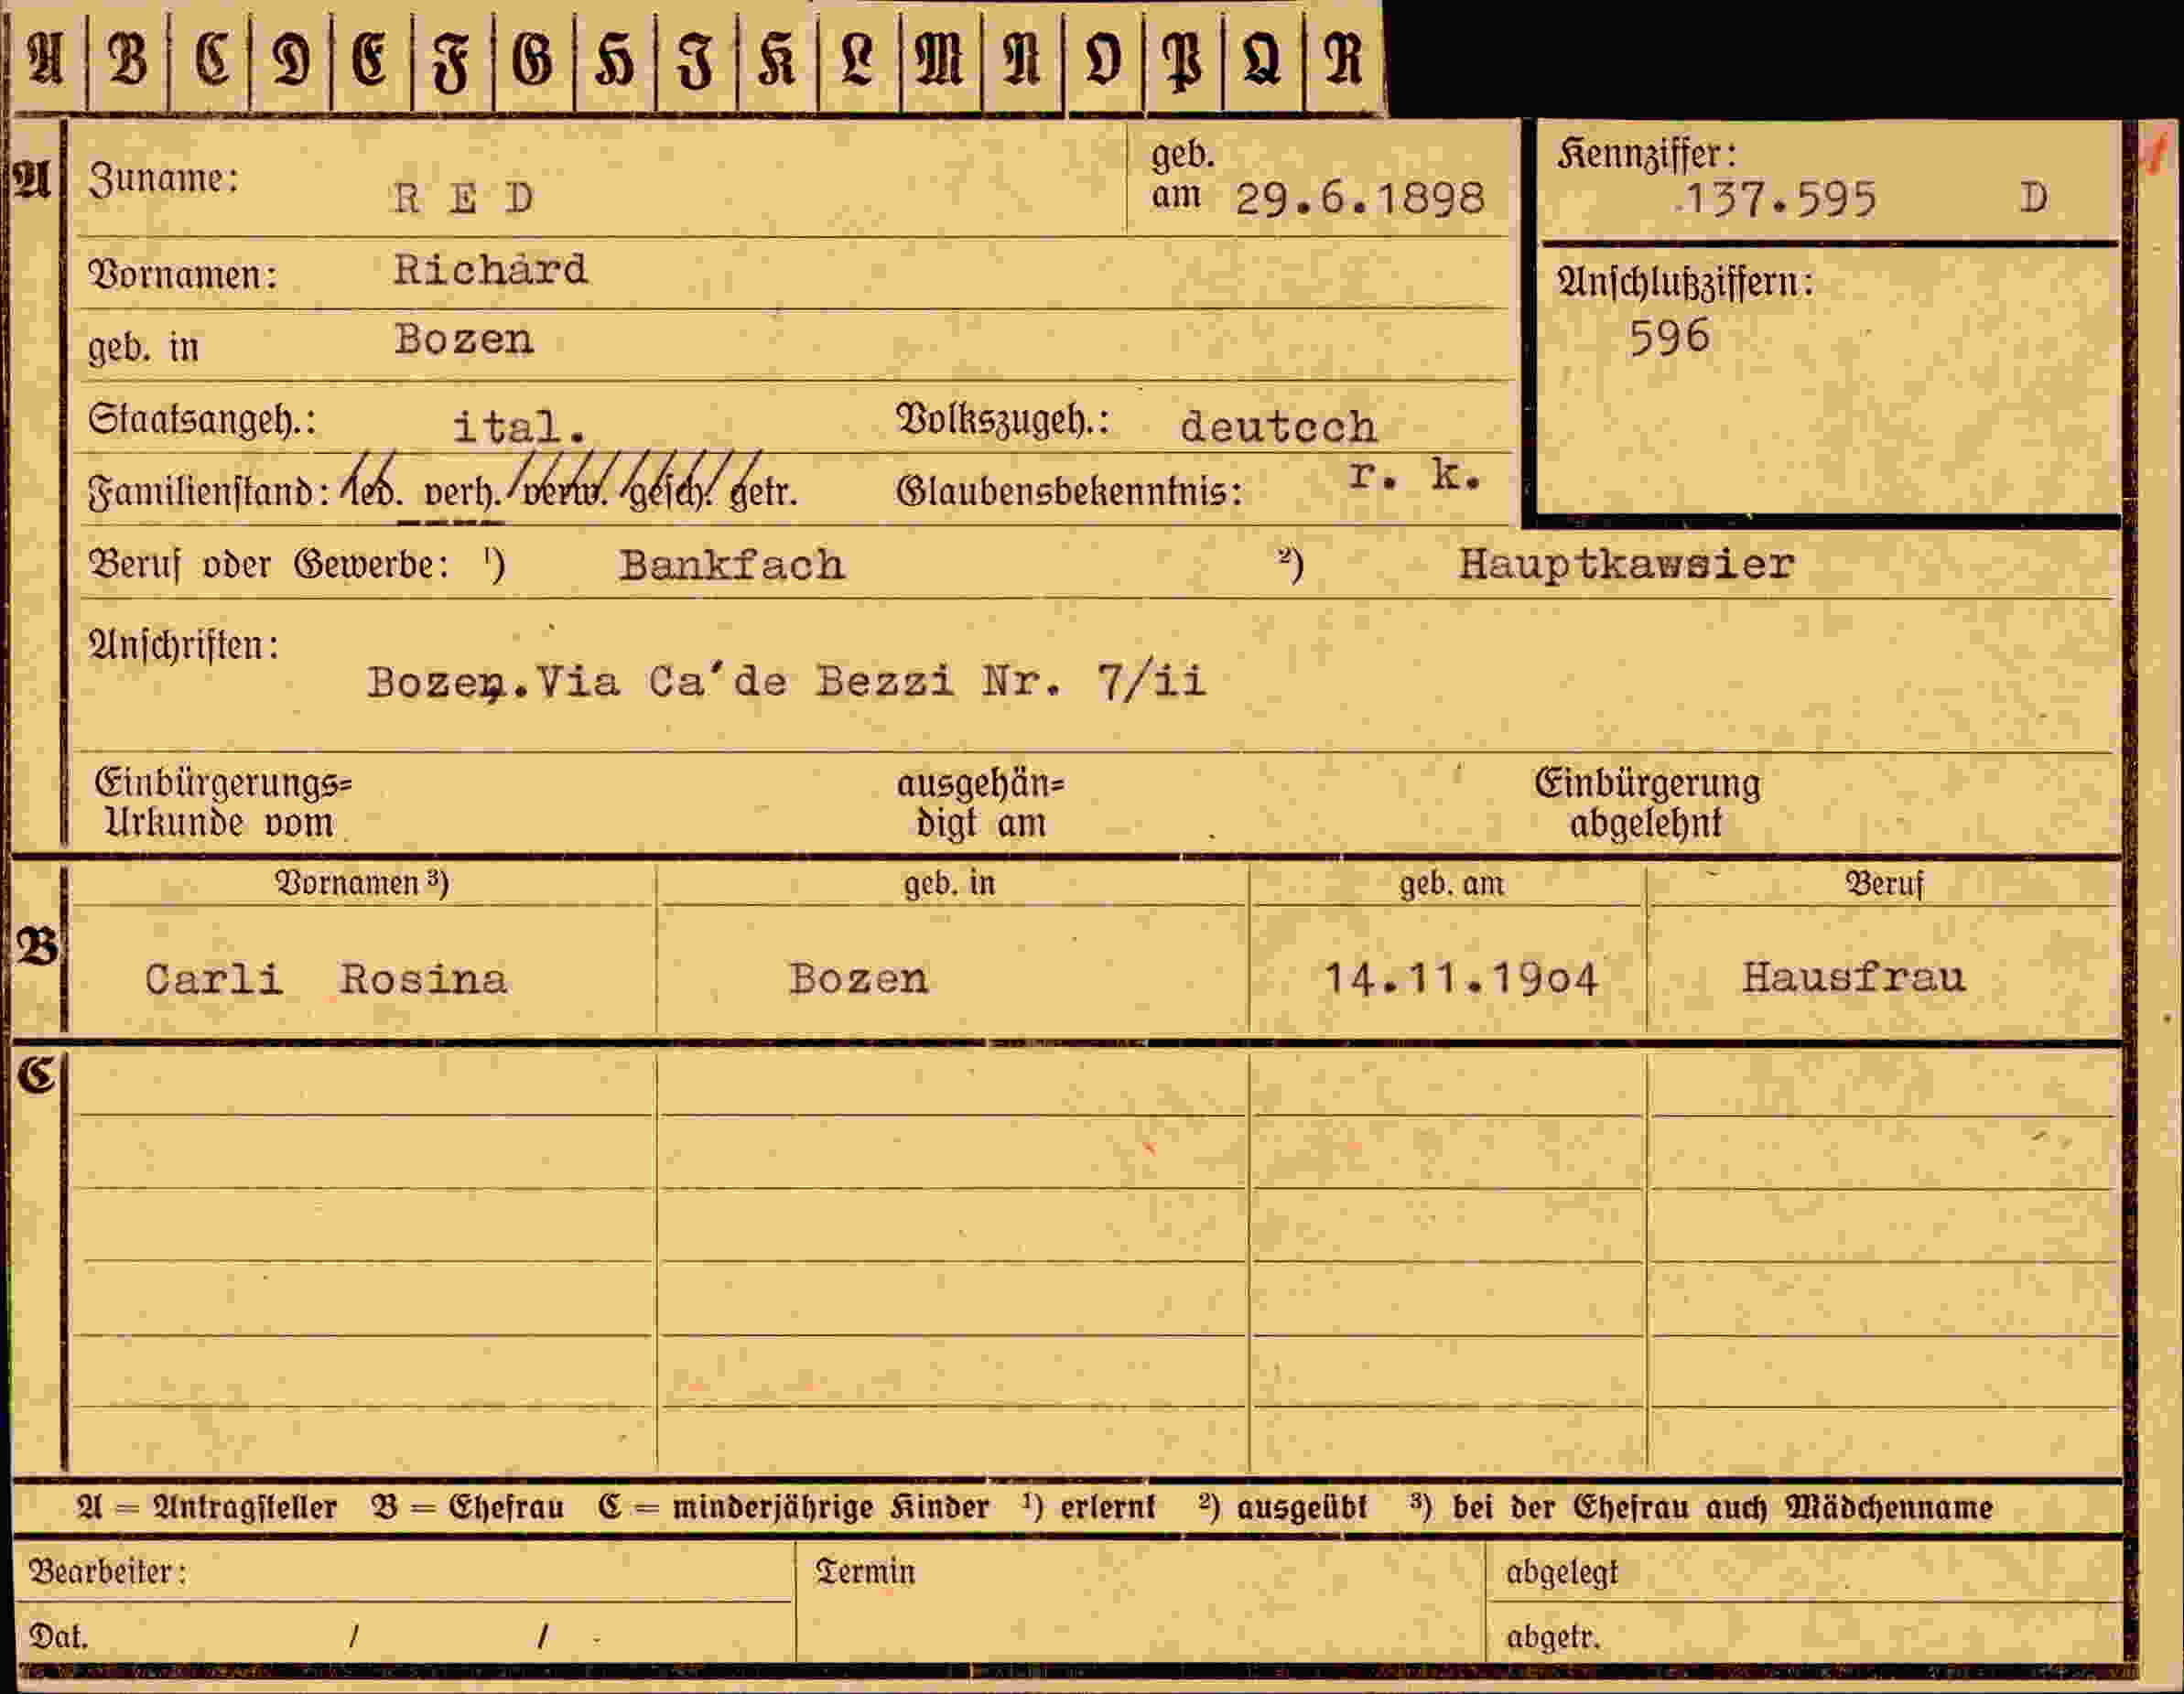 A B C D E F G H J K L M N O P Q R
A Zuname: RED geb. am 29.6.1898 Kennziffer: 137.595 D
Vornamen: Richard
Anschlußziffern: 596
geb. in Bozen
Staatsangeh.: ital. Volkszugeh.: deutcch
Familienstand: led. verh. verw. gesch. getr. Glaubensbekenntnis: r. k.
Beruf oder Gewerbe: ¹) Bankfach ²) Hauptkawsier
Anschriften:
Bozen.Via Ca'de Bezzi Nr. 7/ii
Einbürgerungs= ausgehän= Einbürgerung
Urkunde vom digt am abgelehnt
Vornamen ³) geb. in geb. am Beruf
B Carli Rosina Bozen 14.11.19o4 Hausfrau
C
A = Antragsteller B = Ehefrau C = minderjährige Kinder ¹) erlernt ²) ausgeübt ³) bei der Ehefrau auch Mädchenname
Bearbeiter: Termin abgelegt
Dat. / / abgetr.